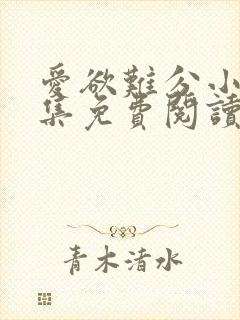 愛欲難分小
集免費閱讀
青木清水